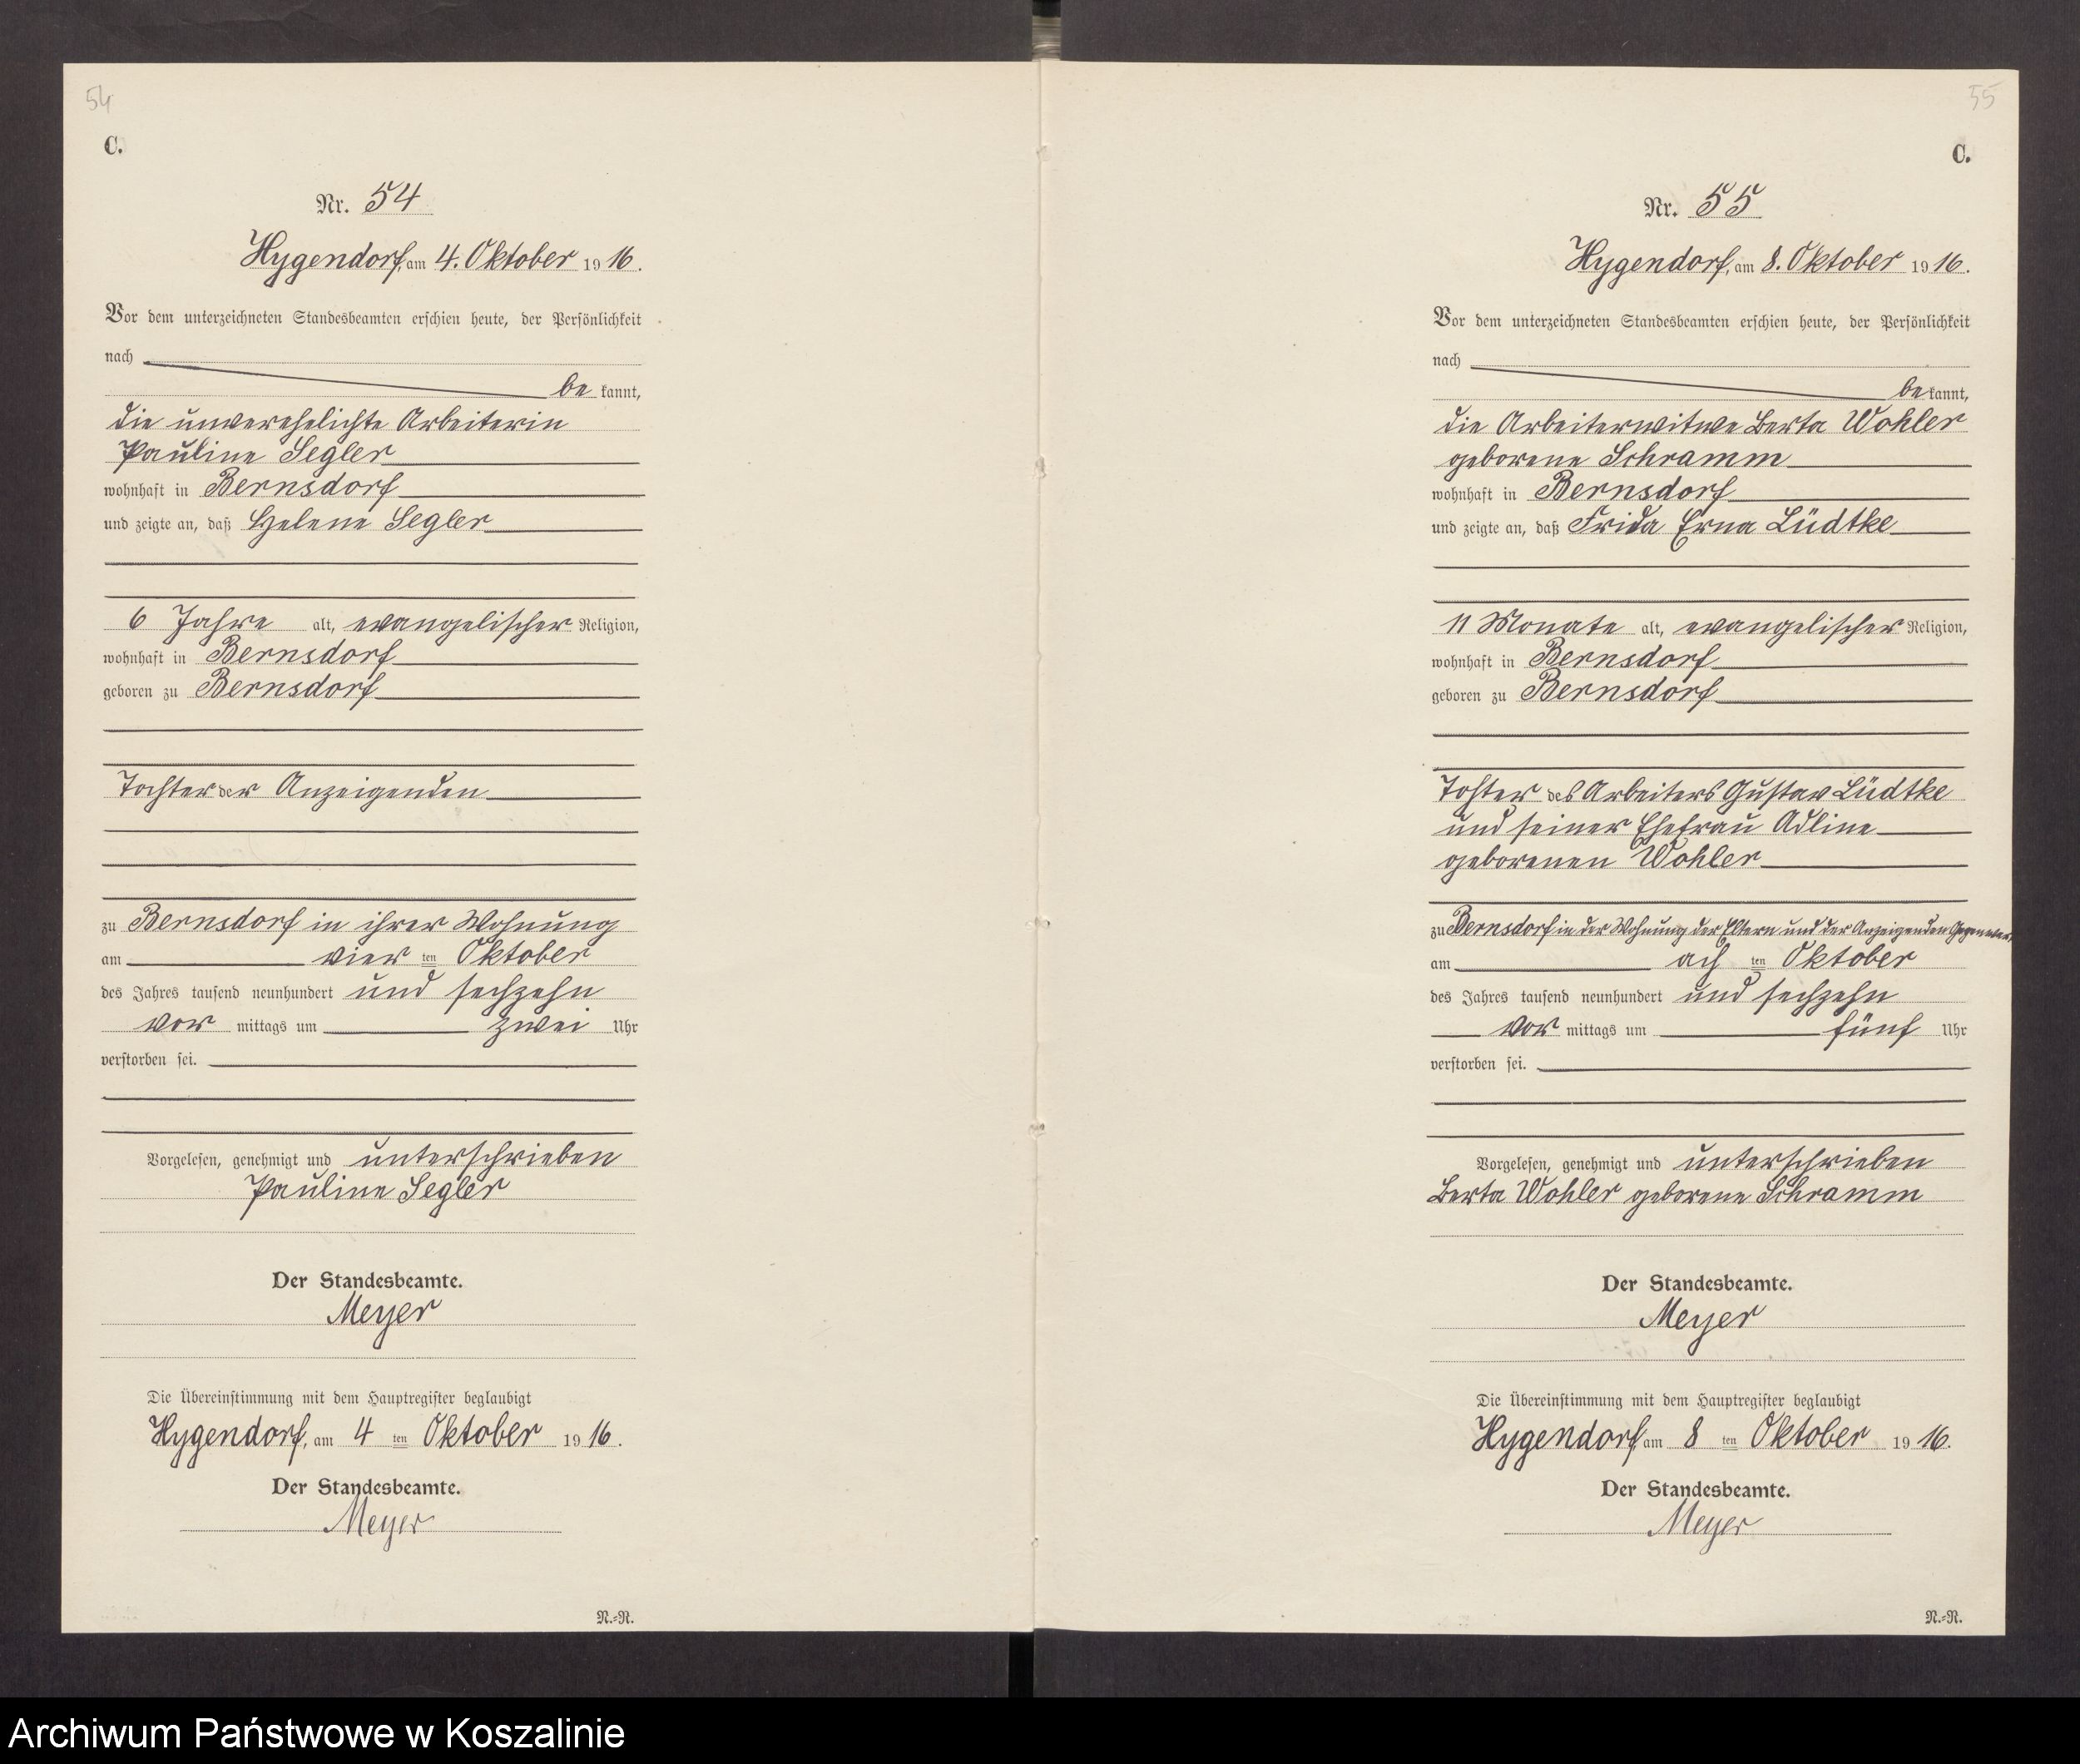 54
C.
Nr. 54
Hygendorf, am 4. Oktober 1916.
Vor dem unterzeichneten Standesbeamten erschien heute, der Persönlichkeit
nach
be kannt,
die unverehelichte Arbeiterin
Pauline Segler
wohnhaft in Bernsdorf
und zeigte an, daß Helene Segler
6 Jahre alt, evangelischer Religion,
wohnhaft in Bernsdorf
geboren zu Bernsdorf
Tochter der Anzeigenden
zu Bernsdorf in ihrer Wohnung
am vier ten Oktober
des Jahres tausend neunhundert und sechzehn
vor mittags um zwei Uhr
verstorben sei.
Vorgelesen, genehmigt und unterschrieben
Pauline Segler
Der Standesbeamte.
Meyer
Die Übereinstimmung mit dem Hauptregister beglaubigt
Hygendorf, am 4 ten Oktober 1916.
Der Standesbeamte.
Meyer
N.=R.
55
C.
Nr. 55
Hygendorf, am 8. Oktober 1916.
Vor dem unterzeichneten Standesbeamten erschien heute, der Persönlichkeit
nach
be kannt,
die Arbeiterwitwe Berta Wohler
geborene Schramm
wohnhaft in Bernsdorf
und zeigte an, daß Frida Erna Lüdtke
11 Monate alt, evangelischer Religion,
wohnhaft in Bernsdorf
geboren zu Bernsdorf
Tochter des Arbeiters Gustav Lüdtke
und seiner Ehefrau Adline
geborenen Wohler
zu Bernsdorf in der Wohnung der Eltern und der Anzeigenden
am ach ten Oktober
des Jahres tausend neunhundert und sechzehn
vor mittags um fünf Uhr
verstorben sei.
Vorgelesen, genehmigt und unterschrieben
Berta Wohler geborene Schramm
Der Standesbeamte.
Meyer
Die Übereinstimmung mit dem Hauptregister beglaubigt
Hygendorf, am 8 ten Oktober 1916.
Der Standesbeamte.
Meyer
N.=R.
Archiwum Państwowe w Koszalinie